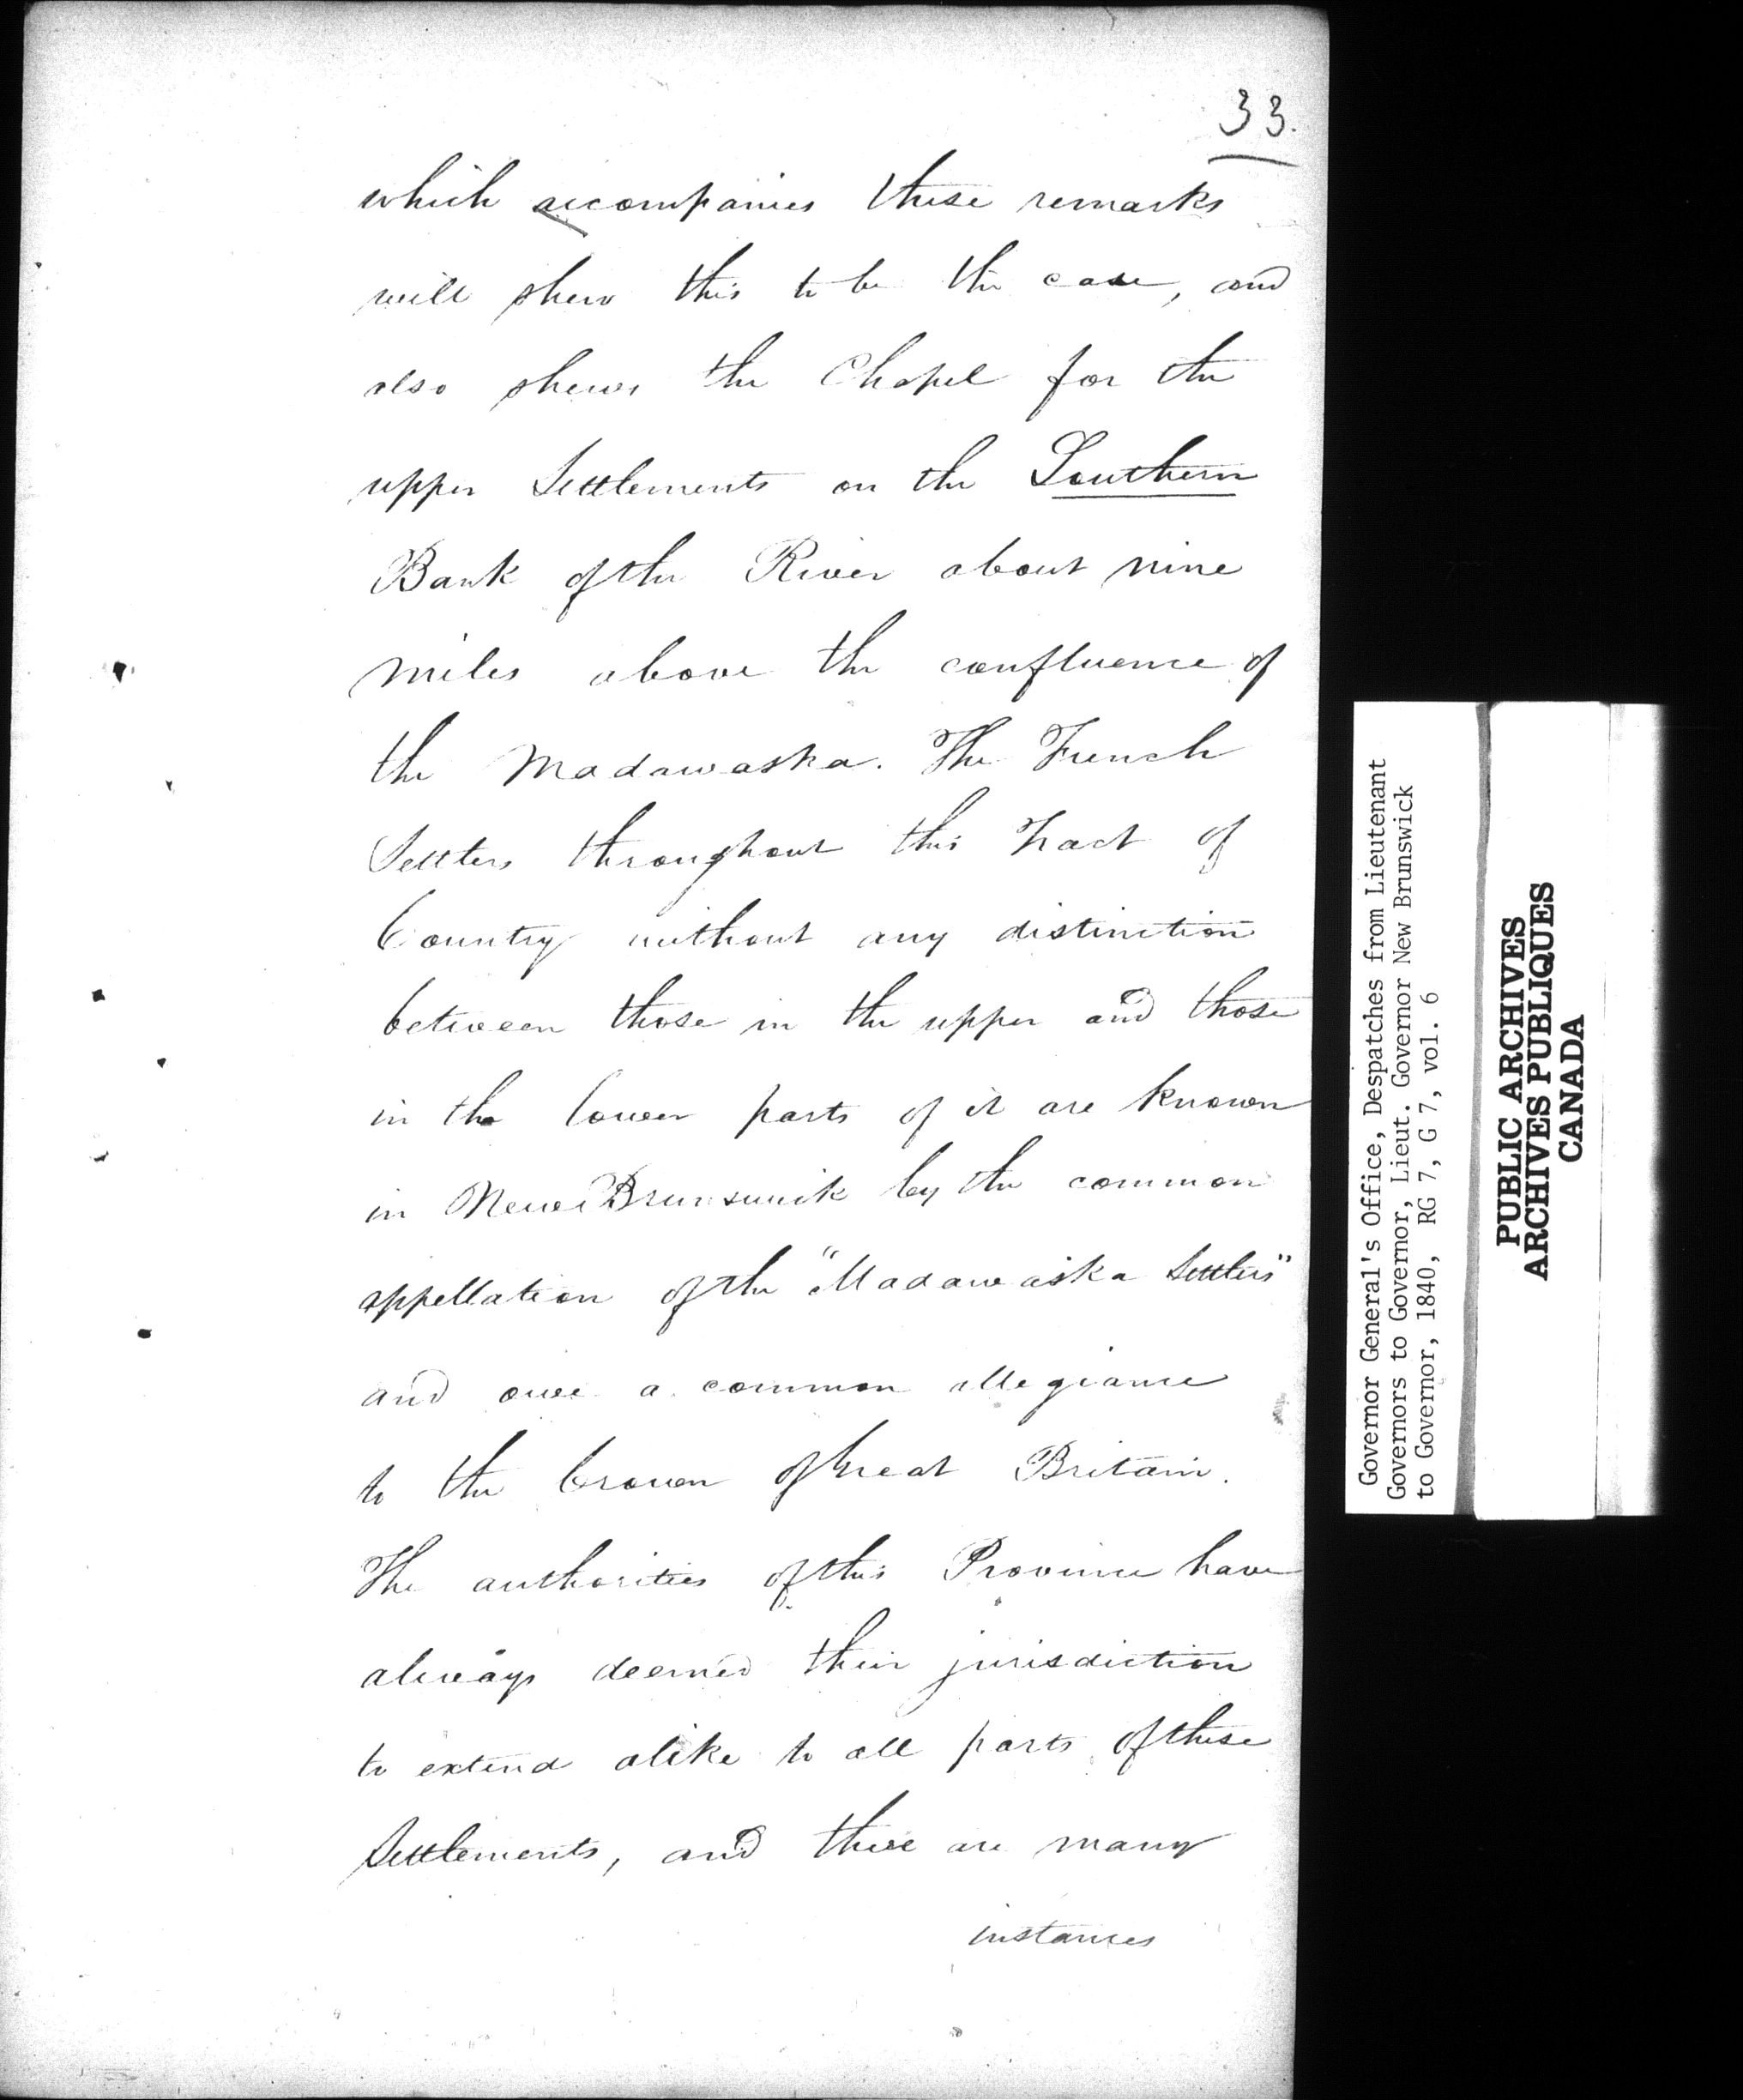 33.
which accompanies these remarks
will shew this to be the case, and
also shews the Chapel for the
upper Settlements on the Southern
Bank of the River about nine
miles above the confluence of
the Madawaska. The French
Settlers throughout this Tract of
Country without any distinction
between those in the upper and those
in the lower parts of it are known
in New Brunswick by the common
appellation of the "Madawaska Settlers"
and owe a common allegiance
to the Crown of Great Britain.
The authorities of this Province have
always deemed their jurisdiction
to extend alike to all parts of these
Settlements, and there are many
instances
Governor General's Office, Despatches from Lieutenant
Governors to Governor, Lieut. Governor New Brunswick
to Governor, 1840, RG 7, G 7, vol. 6
PUBLIC ARCHIVES
ARCHIVES PUBLIQUES
CANADA